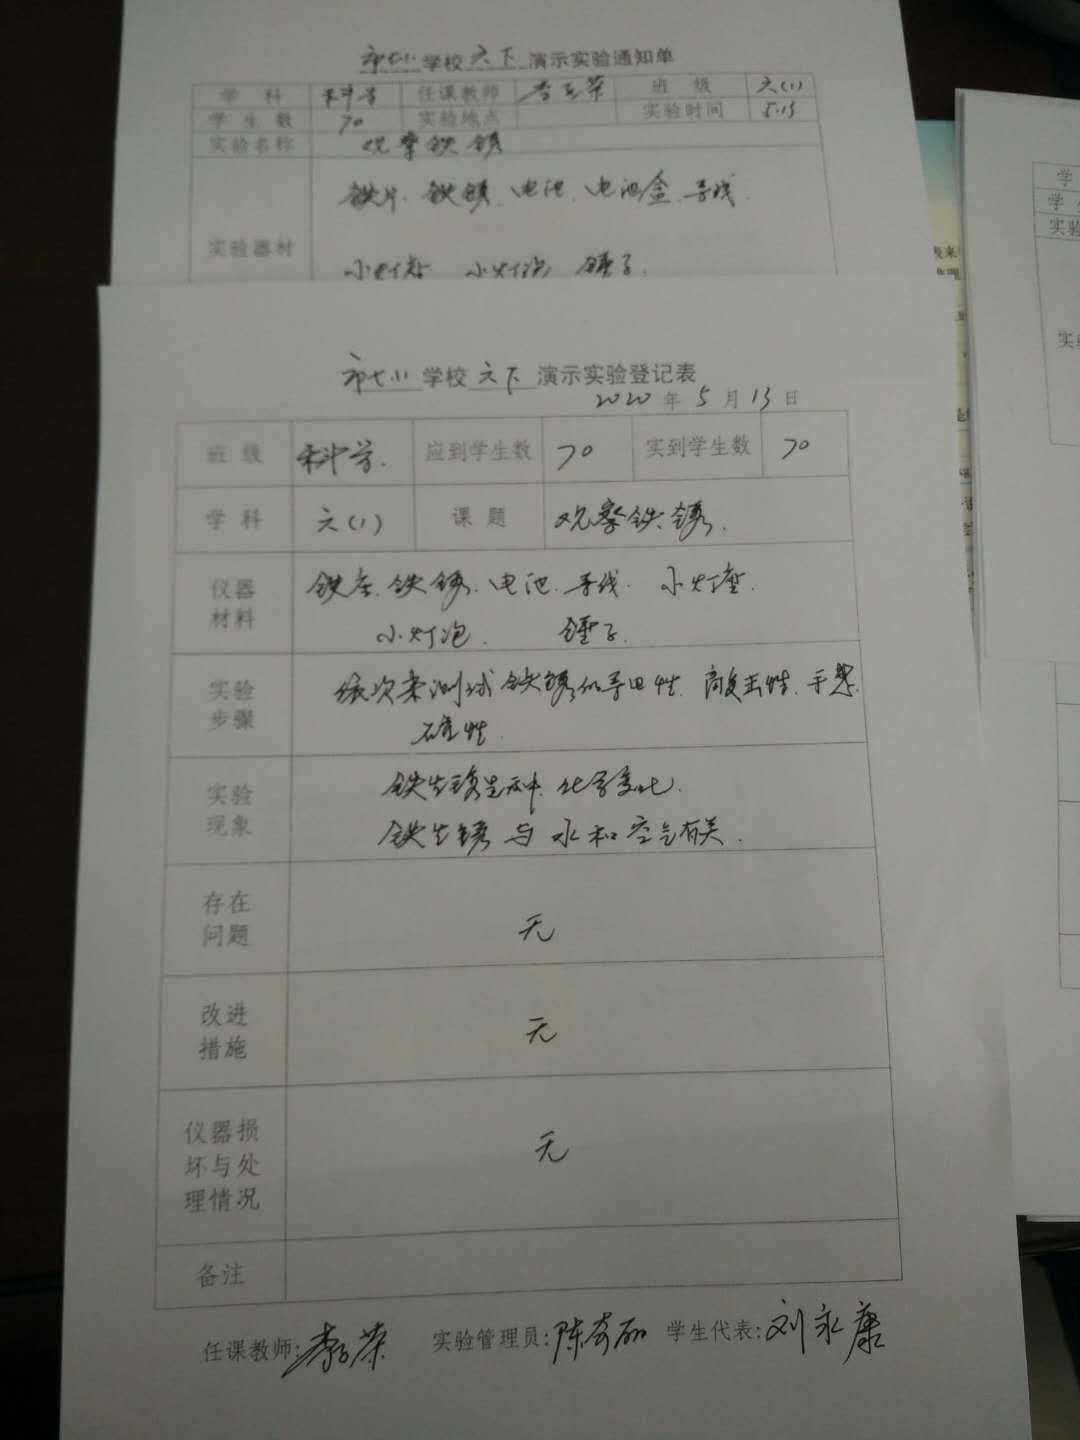 市七小学校六下演示实验通知单
学 科 科学 任课教师 班 级 六(1)
学生数 70 实验地点 实验时间 5.13
实验名称 观察铁锈
铁片、铁锈、电池、电池盒、导线、
实验器材
小灯座 小灯泡 锤子.
市七小学校六下演示实验登记表
2020年5月13日
班 级 科学. 应到学生数 70 实到学生数 70
学 科 六(1) 课 题 观察铁锈.
仪器材料 铁片、铁锈、电池、导线、小灯座.
小灯泡. 锤子.
实验步骤 依次来测试铁锈的导电性、敲击性、手感、
实验现象 铁生锈是一种化学变化.
铁生锈与水和空气有关.
存在问题 无
改进措施 无
仪器损坏与处理情况 无
备注
任课教师: 实验管理员: 学生代表:刘永康
学
学
实验
实